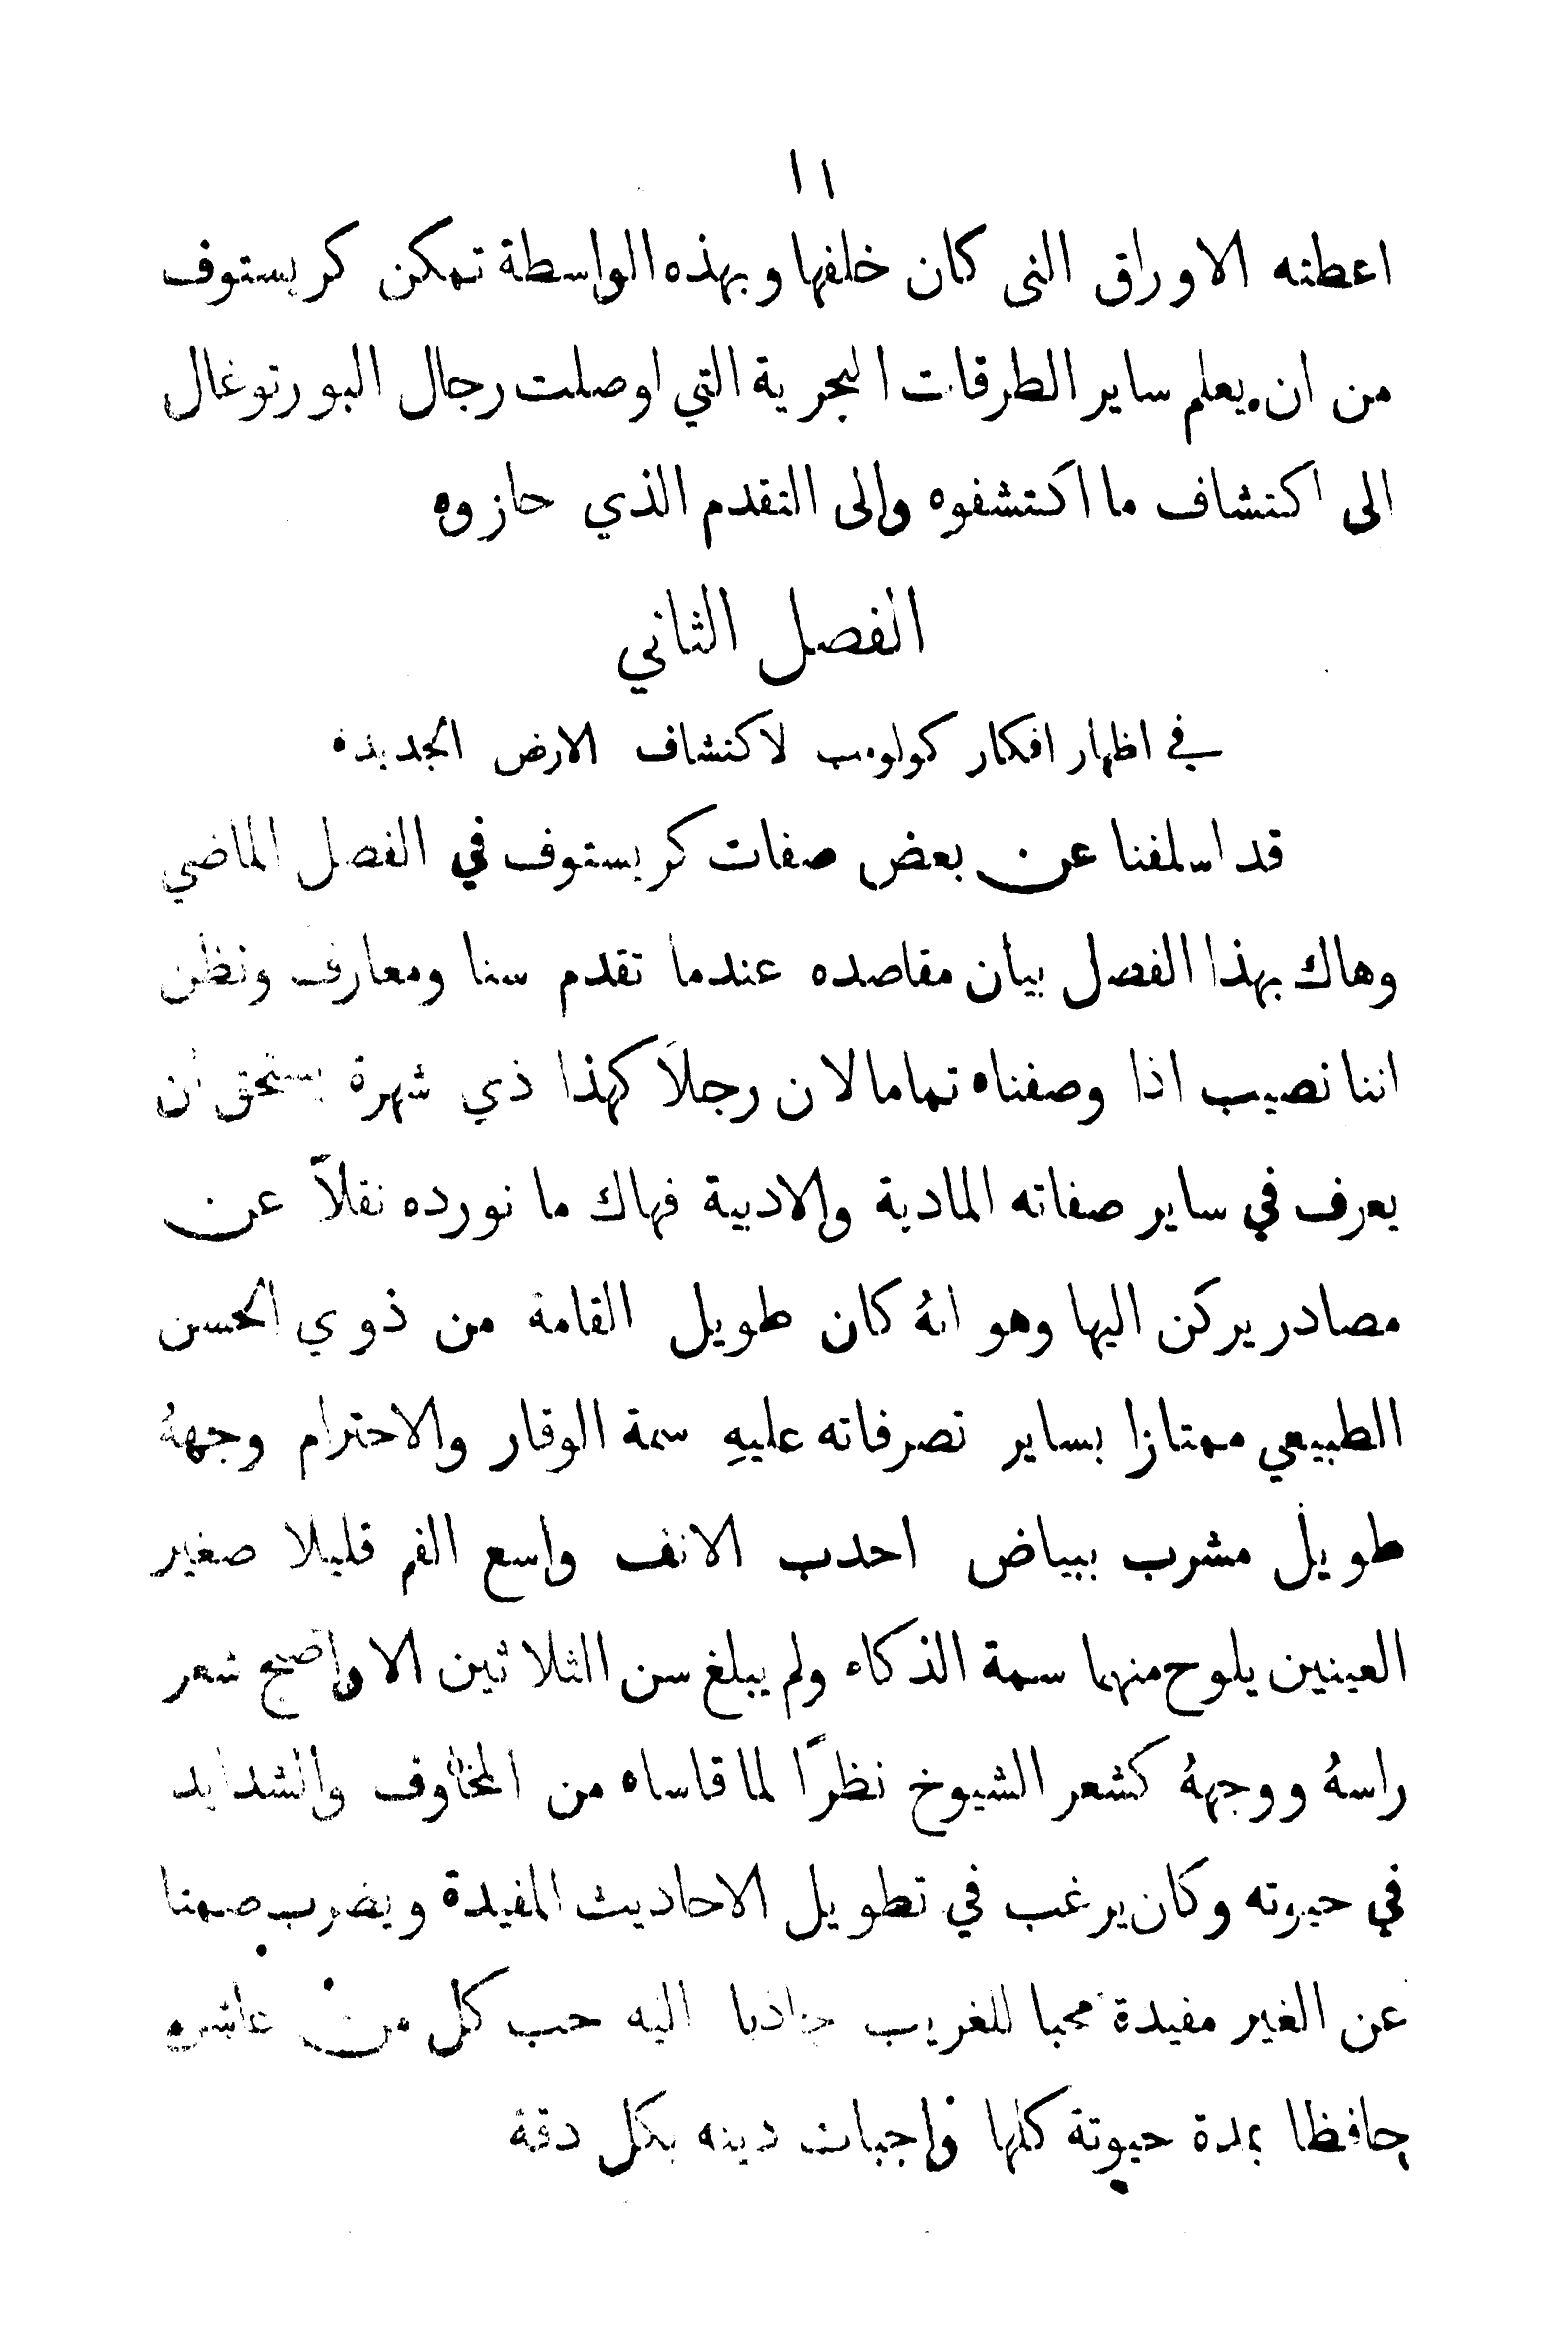 ١١
اعطته الاوراق التى كان خلفها وبهذه الواسطة تمكن كريستوف
من ان يعلم ساير الطرقات البحرية التي اوصلت رجال البورتوغال
الى اكتشاف ما اكتشفوه والى التقدم الذي حازوه
الفصل الثاني
في اظهار افكار كولومب لاكتشاف الارض الجديدة
قد اسلفنا عن بعض صفات كريستوف في الفصل الماضي
وهاك بهذا الفصل بيان مقاصده عندما تقدم سنا ومعارف ونظن
اننا نصيب اذا وصفناه تماما لان رجلاً كهذا ذي شهرة يستحق ان
يعرف في ساير صفاته المادية والادبية فهاك ما نورده نقلاً عن
مصادر يركن اليها وهو انهُ كان طويل القامة من ذوي الحسن
الطبيعي ممتازا بساير تصرفاته عليهِ سمة الوقار والاحترام وجههُ
طويل مشرب ببياض احدب الانف واسع الفم قليلا صغير
العينين يلوح منهما سمة الذكاء ولم يبلغ سن الثلاثين الا واصبح شعر
راسهُ ووجههُ كشعر الشيوخ نظرًا لما قاساه من المخاوف والشدايد
في حيوته وكان يرغب في تطويل الاحاديث المفيدة ويضرب صمتا
عن الغير مفيدة محبا للغريب جاذبا اليه حب كل من عاشره
حافظا بمدة حيوتة كلها واجبات دينه بكل دقة